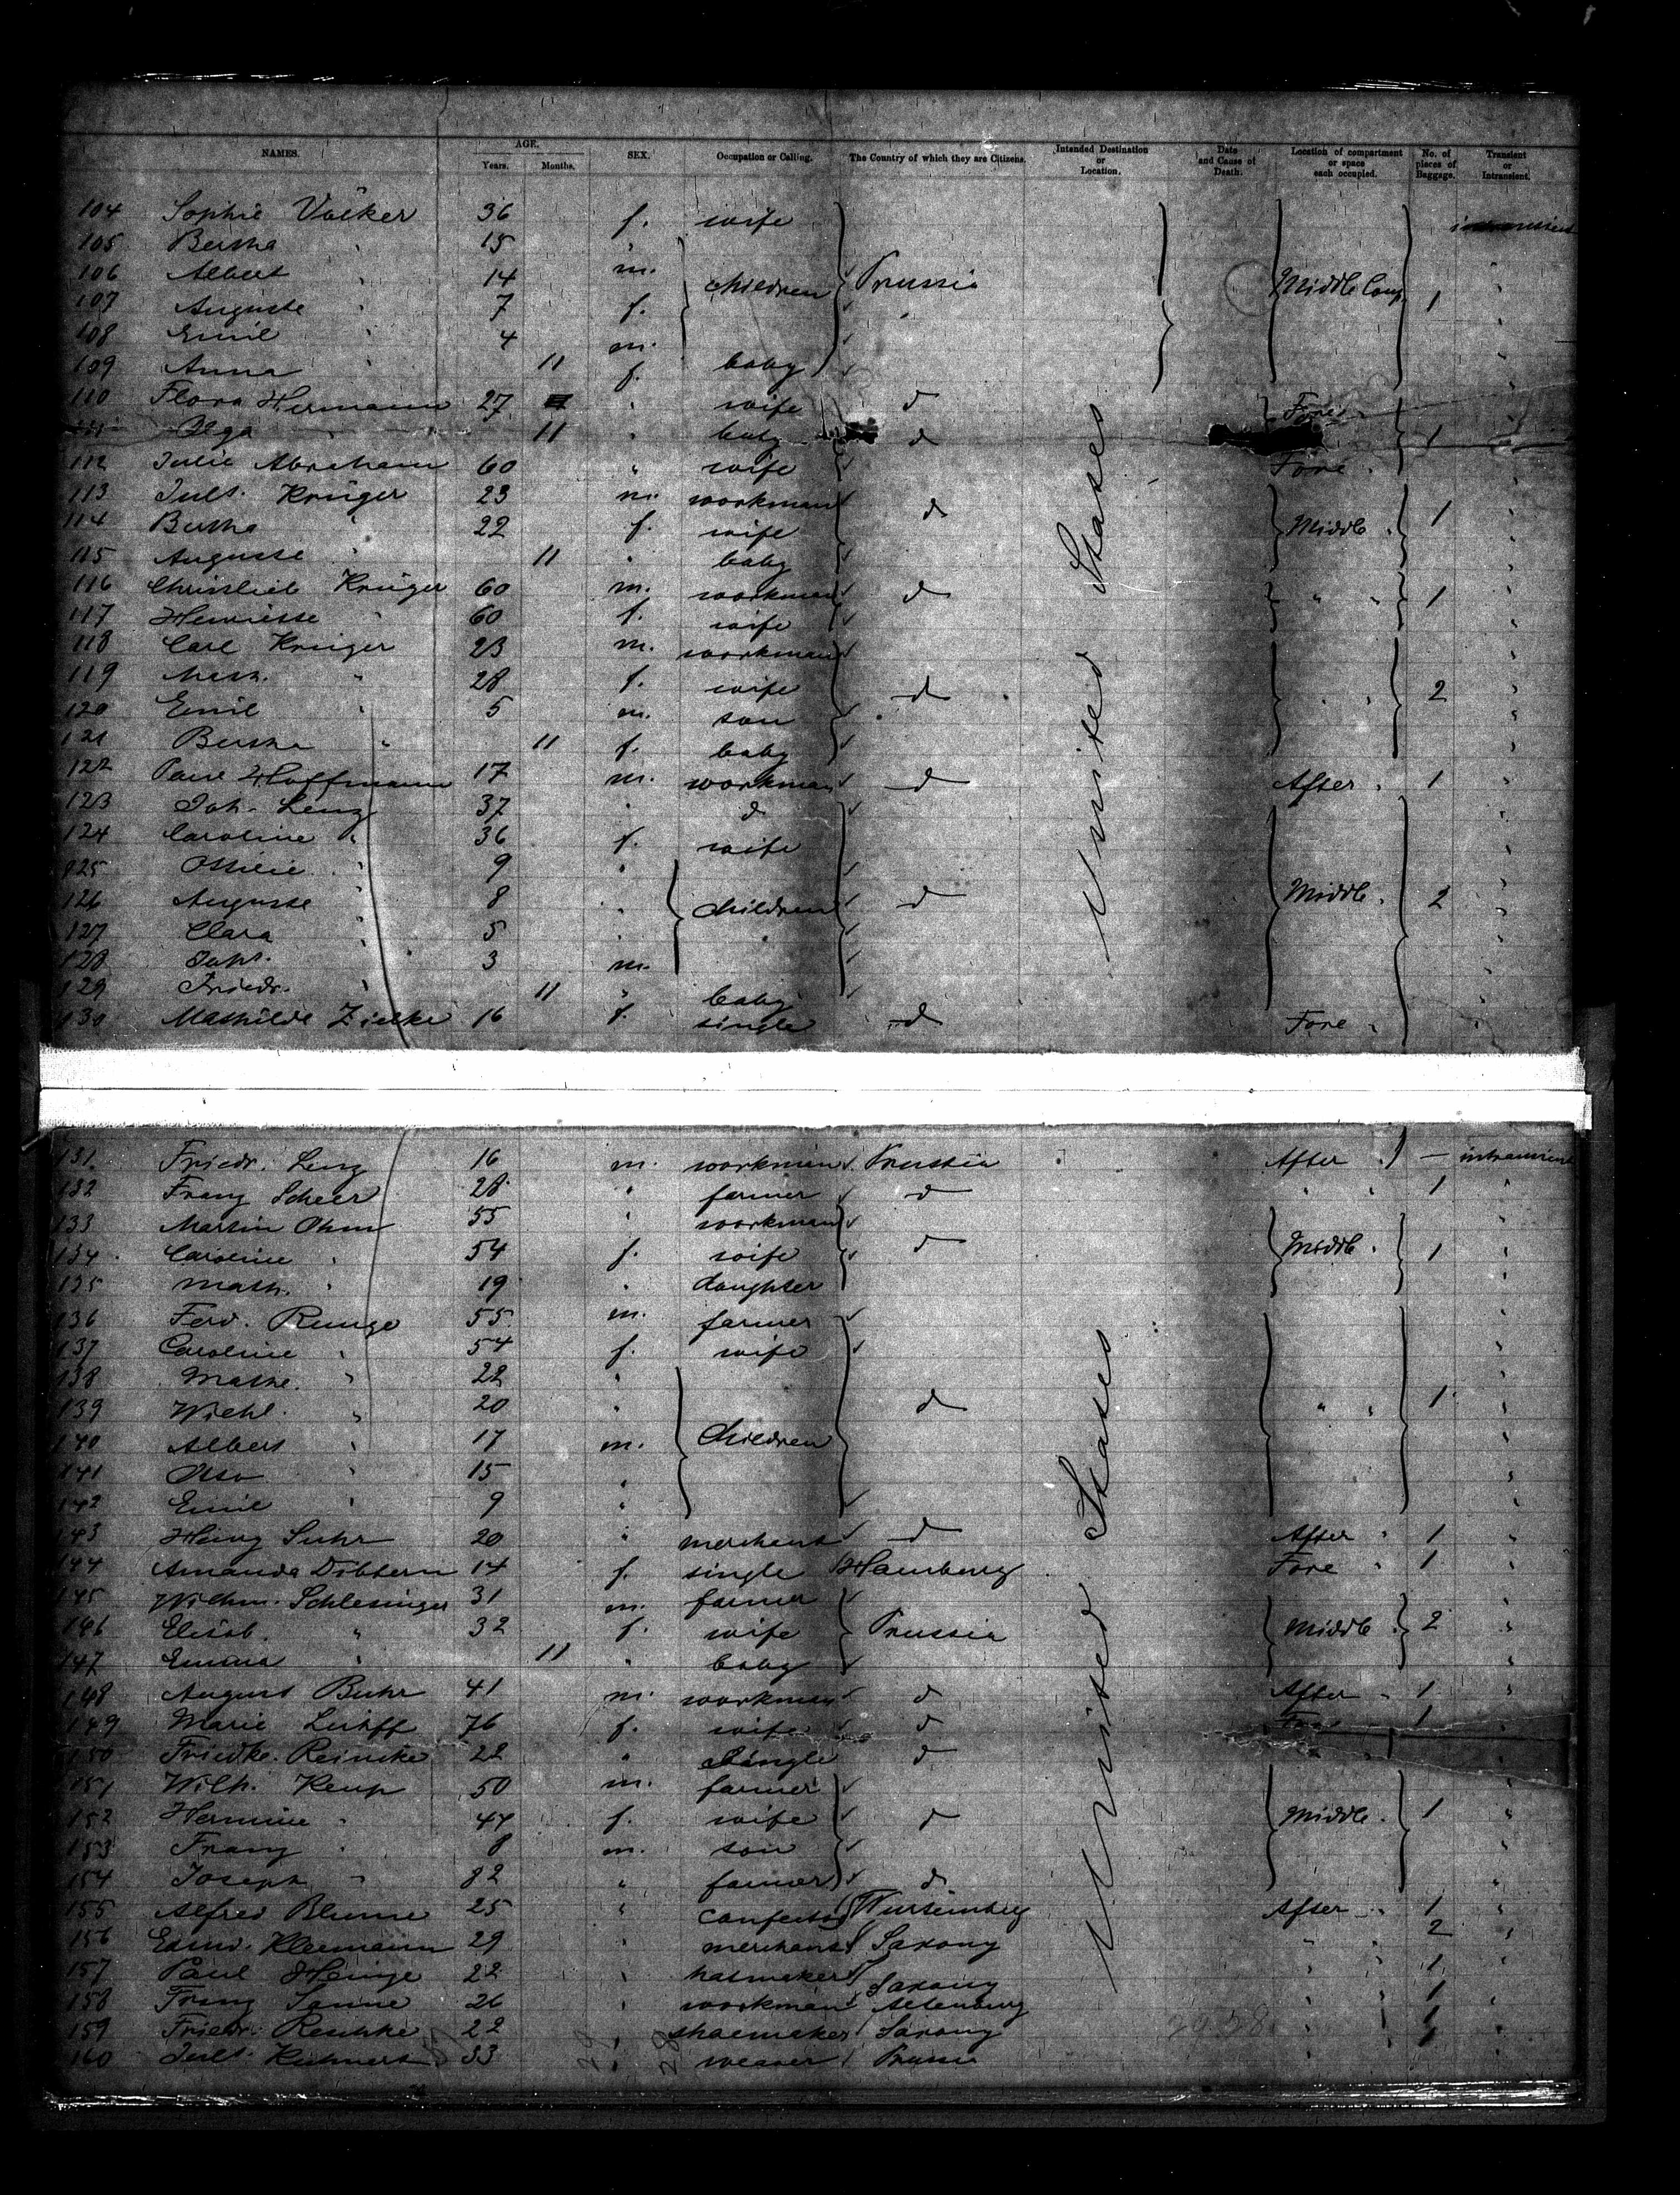 NAMES. AGE. Years. Months. SEX. Occupation or Calling. The Country of which they are Citizens. Intended Destination or Location. Date and Cause of Death. Location of compartment or space each occupied. No. of pieces of Baggage. Transient or Intransient.
104 Sophie Völker 36 f. wife
105 Bertha " 15 "
106 Albert " 14 m. children Prussia Middle Comp. 1
107 Auguste " 7 f.
108 Emil " 4 m.
109 Anna " 11 f. baby
110 Flora Hermann 27 " wife d Fore
111 Olga " 11 " baby d 1
112 Julie Abraham 60 " wife Fore
113 Juls. Krüger 23 m. workman d
114 Bertha " 22 f. wife Middle 1
115 Auguste " 11 " baby
116 Christlieb Krüger 60 m. workman d " " 1
117 Henriette " 60 f. wife
118 Carl Krüger 23 m. workman
119 " 28 f. wife d " " 2
120 Emil " 5 m. son
121 Bertha " 11 f. baby
122 Paul Hoffmann 17 m. workman d After 1
123 Joh. Lenz 37 " d
124 Caroline " 36 f. wife
125 Ottilie " 9 "
126 Auguste " 8 " children d Middle 2
127 Clara " 5 "
128 Johs. 3 m.
129 Friedr. " 11 " baby
130 Mathilde Zielke 16 f. single d Fore
United States
131. Friedr. Lenz 16 m. workman Prussia After — intransient
132 Franz Scheer 28 " farmer d " " 1
133 Martin Ohm 55 " workman
134 Caroline " 54 f. wife d Middle 1
135 Math. " 19 " daughter
136 Ferd. Runge 55 m. farmer
137 Caroline " 54 f. wife
138 Mathe. " 22 "
139 Wilhl. " 20 " d " " 1
140 Albert " 17 m. children
141 Otto " 15 "
142 Emil " 9 "
143 Heinz Suhr 20 " merchant d After 1
144 Amanda Dibbern 14 f. single Hamburg Fore 1
145 Wilhm. Schlesinger 31 m. farmer
146 Elisab. " 32 f. wife Prussia Middle 2
147 Emma " 11 " baby
148 August Buhr 41 m. workman d After 1
149 Marie 76 f. wife d Fore 1
150 Friedke. Reincke 22 " single d
151 Wilh. Kemp 50 m. farmer
152 Hermine " 47 f. wife d Middle 1
153 Franz " 8 m. son
154 Joseph " 82 " farmer d
155 Alfred Blume 25 " Würtemberg After 1
156 Edmd. Kleemann 29 " merchant Saxony " 2
157 Paul Heinze 22 " hatmaker Saxony 1
158 Franz Sanne 26 " workman Altenburg " " 1
159 Friedr. Reschke 22 " shoemaker Saxony " 1
160 Juls. Kuhnert 33 " weaver Prussia " " 1
United States